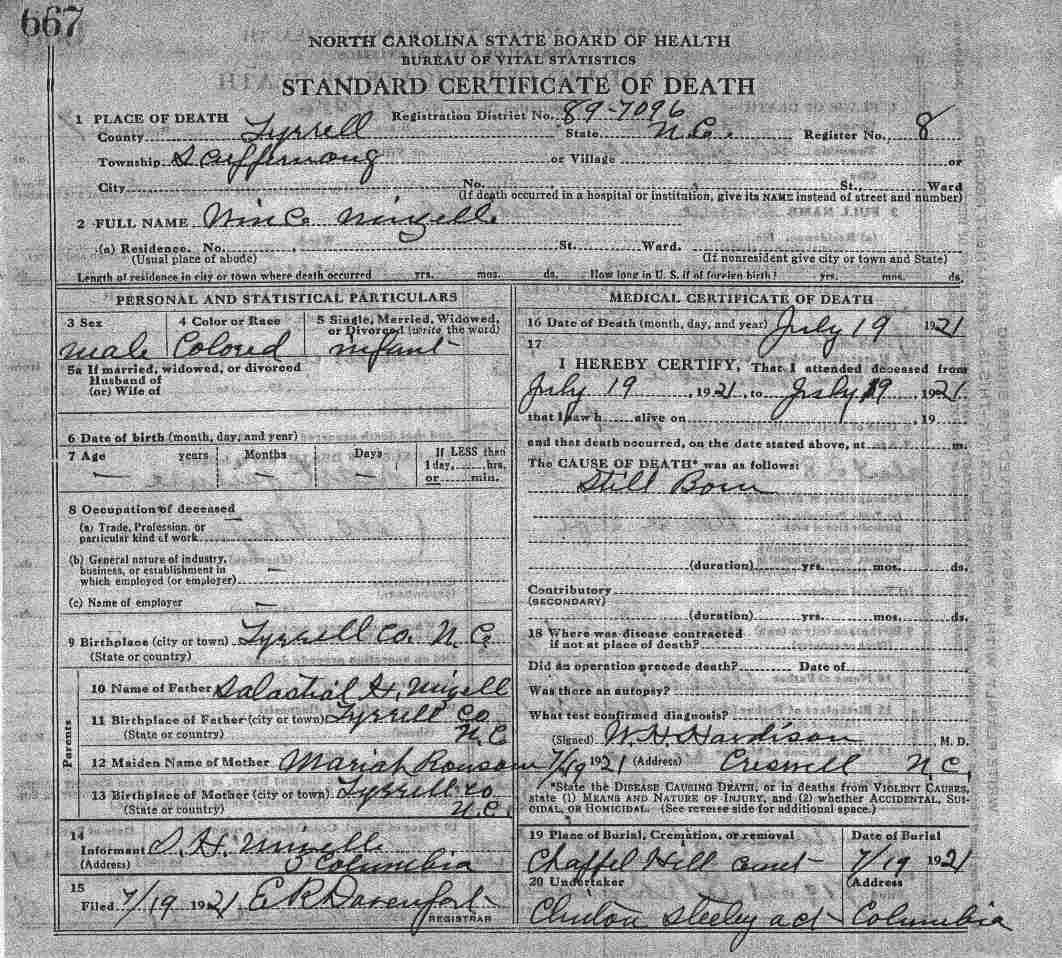 667
NORTH CAROLINA STATE BOARD OF HEALTH
BUREAU OF VITAL STATISTICS
STANDARD CERTIFICATE OF DEATH
1 PLACE OF DEATH Registration District No. 89-7096
County Tyrrell State N.C. Register No. 8
Township Scuppernong or Village or
City No. St., Ward
(If death occurred in a hospital or institution, give its NAME instead of street and number)
2 FULL NAME
(a) Residence. No. St. Ward.
(Usual place of abode) (If nonresident give city or town and State)
Length of residence in city or town where death occurred yrs. mos. ds. How long in U. S. if of foreign birth? yrs. mos. ds.
PERSONAL AND STATISTICAL PARTICULARS
3 Sex 4 Color or Race 5 Single, Married, Widowed,
or Divorced (write the word)
male Colored infant
5a If married, widowed, or divorced
Husband of
(or) Wife of
6 Date of birth (month, day, and year)
7 Age years Months Days If LESS than
1 day, hrs.
or min.
8 Occupation of deceased
(a) Trade, Profession, or
particular kind of work
(b) General nature of industry,
business, or establishment in
which employed (or employer)
(c) Name of employer
9 Birthplace (city or town) Tyrrell Co. N.C.
(State or country)
Parents
10 Name of Father H. Mizell
11 Birthplace of Father (city or town) Tyrrell Co
(State or country) N.C.
12 Maiden Name of Mother Mariah Ronsom
13 Birthplace of Mother (city or town) Tyrrell Co
(State or country) N.C.
14
Informant S. H. Mizell
(Address) Columbia
15
Filed 7/19 1921, E R Davenport
REGISTRAR
MEDICAL CERTIFICATE OF DEATH
16 Date of Death (month, day, and year) July 19 1921
17
I HEREBY CERTIFY, That I attended deceased from
July 19 1921, to July 19, 1921
that I saw h alive on , 19
and that death occurred, on the date stated above, at m.
The CAUSE OF DEATH* was as follows:
Still Born
(duration) yrs. mos. ds.
Contributory
(SECONDARY)
(duration) yrs. mos. ds.
18 Where was disease contracted
if not at place of death?
Did an operation precede death? Date of
Was there an autopsy?
What test confirmed diagnosis?
(Signed) W. H. Hardison M. D.
7/19 1921 (Address) Creswell N.C.
*State the DISEASE CAUSING DEATH, or in deaths from VIOLENT CAUSES,
state (1) MEANS AND NATURE OF INJURY, and (2) whether ACCIDENTAL, SUI-
CIDAL, OR HOMICIDAL. (See reverse side for additional space.)
19 Place of Burial, Cremation, or removal Date of Burial
Chappel Hill cemet 7/19 1921
20 Undertaker (Address)
Clinton Steeley act Columbia